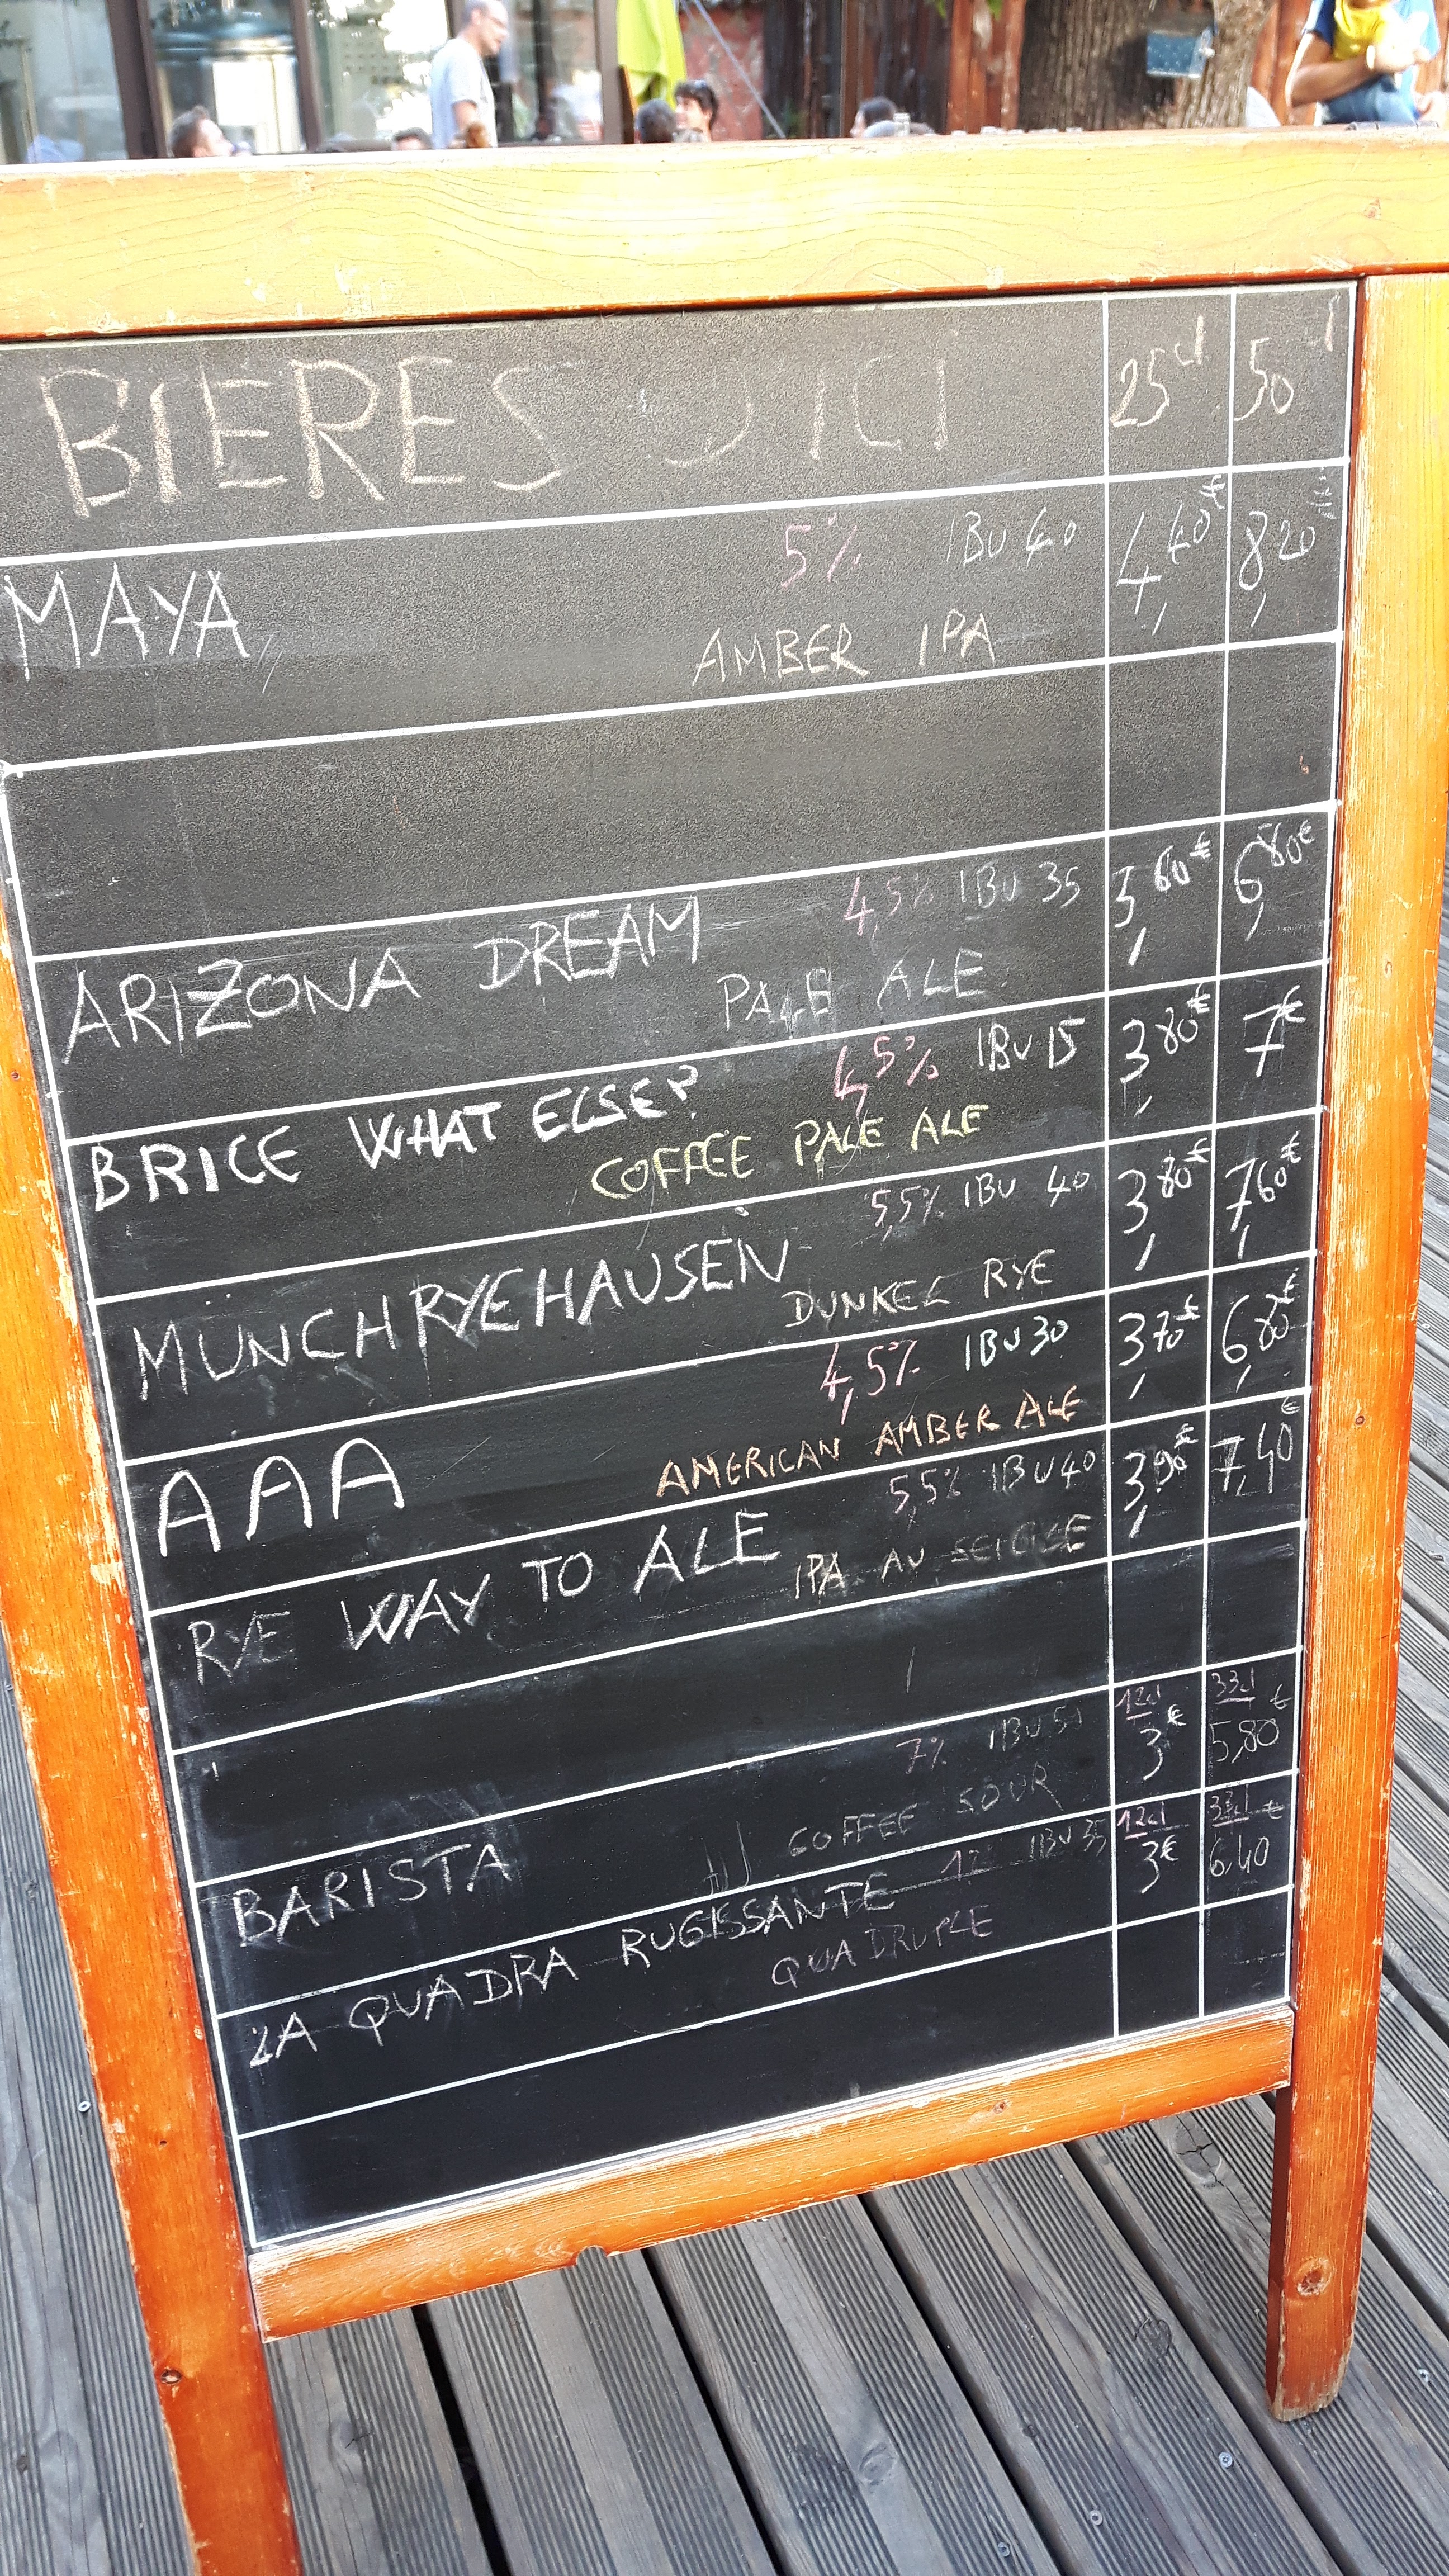 BIÈRES D'ICI 25cl 50cl
MAYA 5% IBU 40 4,40€ 8,20€
AMBER IPA
ARIZONA DREAM 4,5% IBU 35 3,60€ 6,80€
PALE ALE
BRICE WHAT ELSE? 4,5% IBU 15 3,80€ 7€
COFFEE PALE ALE
MÜNCHRYEHAUSEN 5,5% IBU 40 3,80€ 7,60€
DUNKEL RYE
AAA 4,5% IBU 30 3,70€ 6,80€
AMERICAN AMBER ALE
RYE WAY TO ALE 5,5% IBU 40 3,90€ 7,40€
IPA AU SEIGLE
12cl 33cl
BARISTA 7% IBU 50 3€ 5,80€
COFFEE SOUR
12cl 33cl
LA QUADRA RUGISSANTE 12% IBU 35 3€ 6,40€
QUADRUPLE